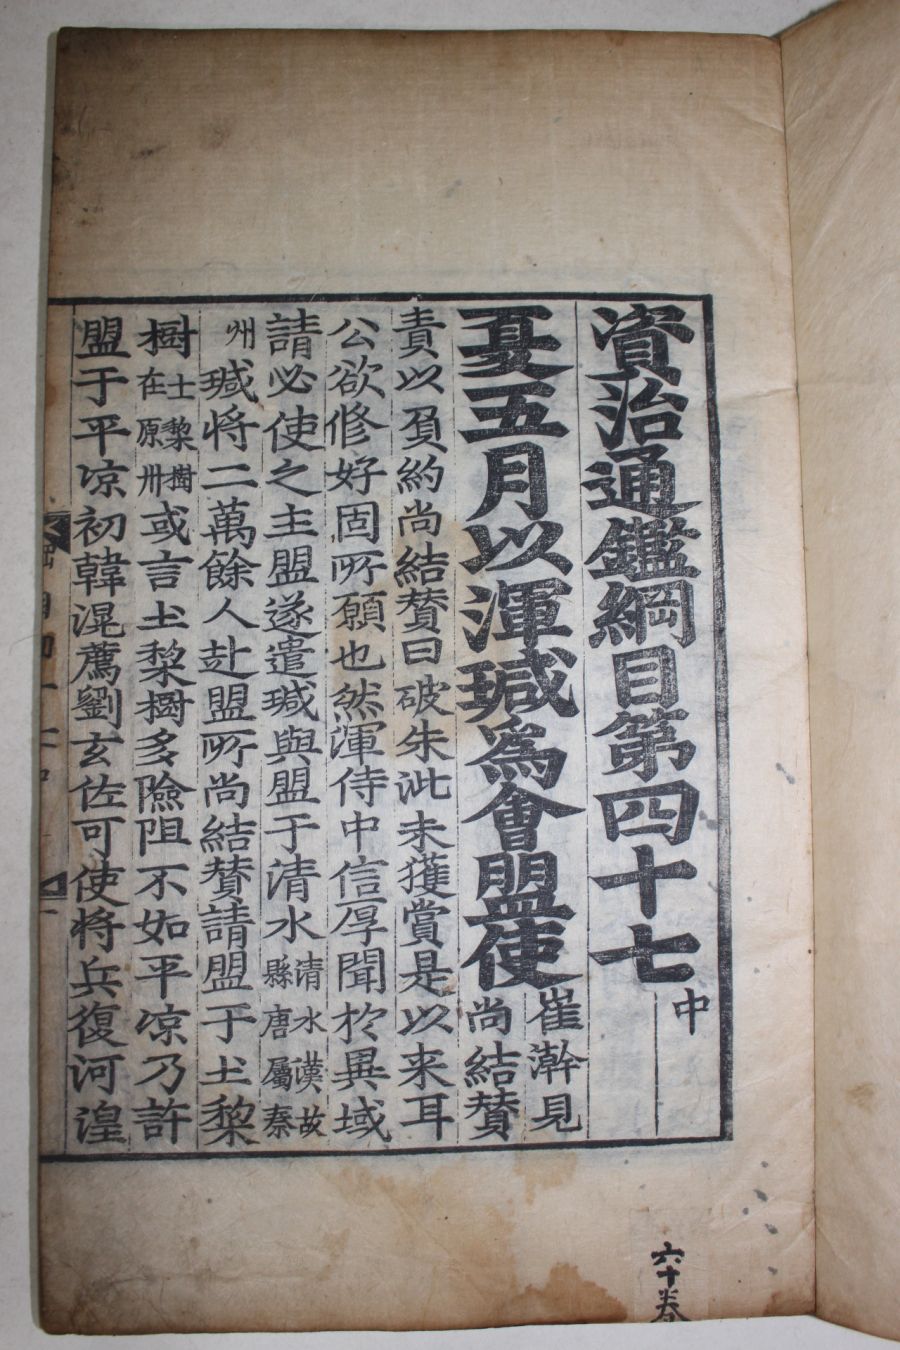 資治通鑑綱目第四十七中
夏五月以渾瑊爲會盟使崔澣見尚結賛
責以負約尚結賛曰破朱泚未獲賞是以来耳
公欲修好固所願也然渾侍中信厚聞於異域
請必使之主盟遂遣瑊與盟于清水清水漢故縣唐屬秦
州瑊将二萬餘人赴盟所尚結賛請盟于土黎
樹土黎樹在原州或言土黎樹多險阻不如平凉乃許
盟于平凉初韓滉薦劉玄佐可使将兵復河湟
六十巻